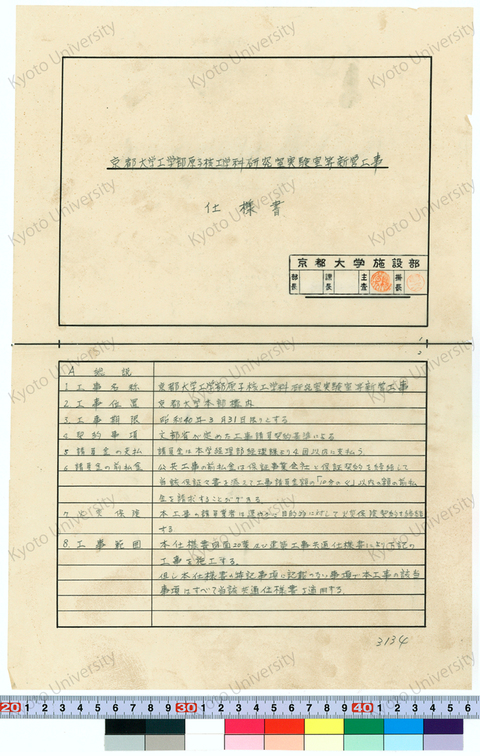 京都大学工学部原子核工学科研究室実験室等新営工事
仕様書
京都大学施設部
部長 課長 主査 掛長
A 総説
1. 工事名称 京都大学工学部原子核工学科研究室実験室等新営工事
2. 工事位置 京都大学本部構内
3. 工事期限 昭和40年3月31日限りとする
4. 契約事項 文部省が定めた工事請負契約基準による
5. 請負金の支払 請負金は本学経理部経理課より 回以内に支払う
6. 請負金の前払金 公共工事の前払金は保証事業会社と保証契約を締結して
当該保証証書を添えて工事請負金額の 以内の額の前払
金を請求することができる
7. 火災保険 本工事の請負業者は速やかに目的物に対して火災保険契約を締結
する
8. 工事範囲 本仕様書図面20葉及び建築工事共通仕様書により下記の
工事を施工する。
但し本仕様書の特記事項に記載のない事項で本工事の該当
事項はすべて当該共通仕様書を適用する。
3134
Kyoto University
20 1 2 3 4 5 6 7 8 9 30 1 2 3 4 5 6 7 8 9 40 1 2 3 4 5 6